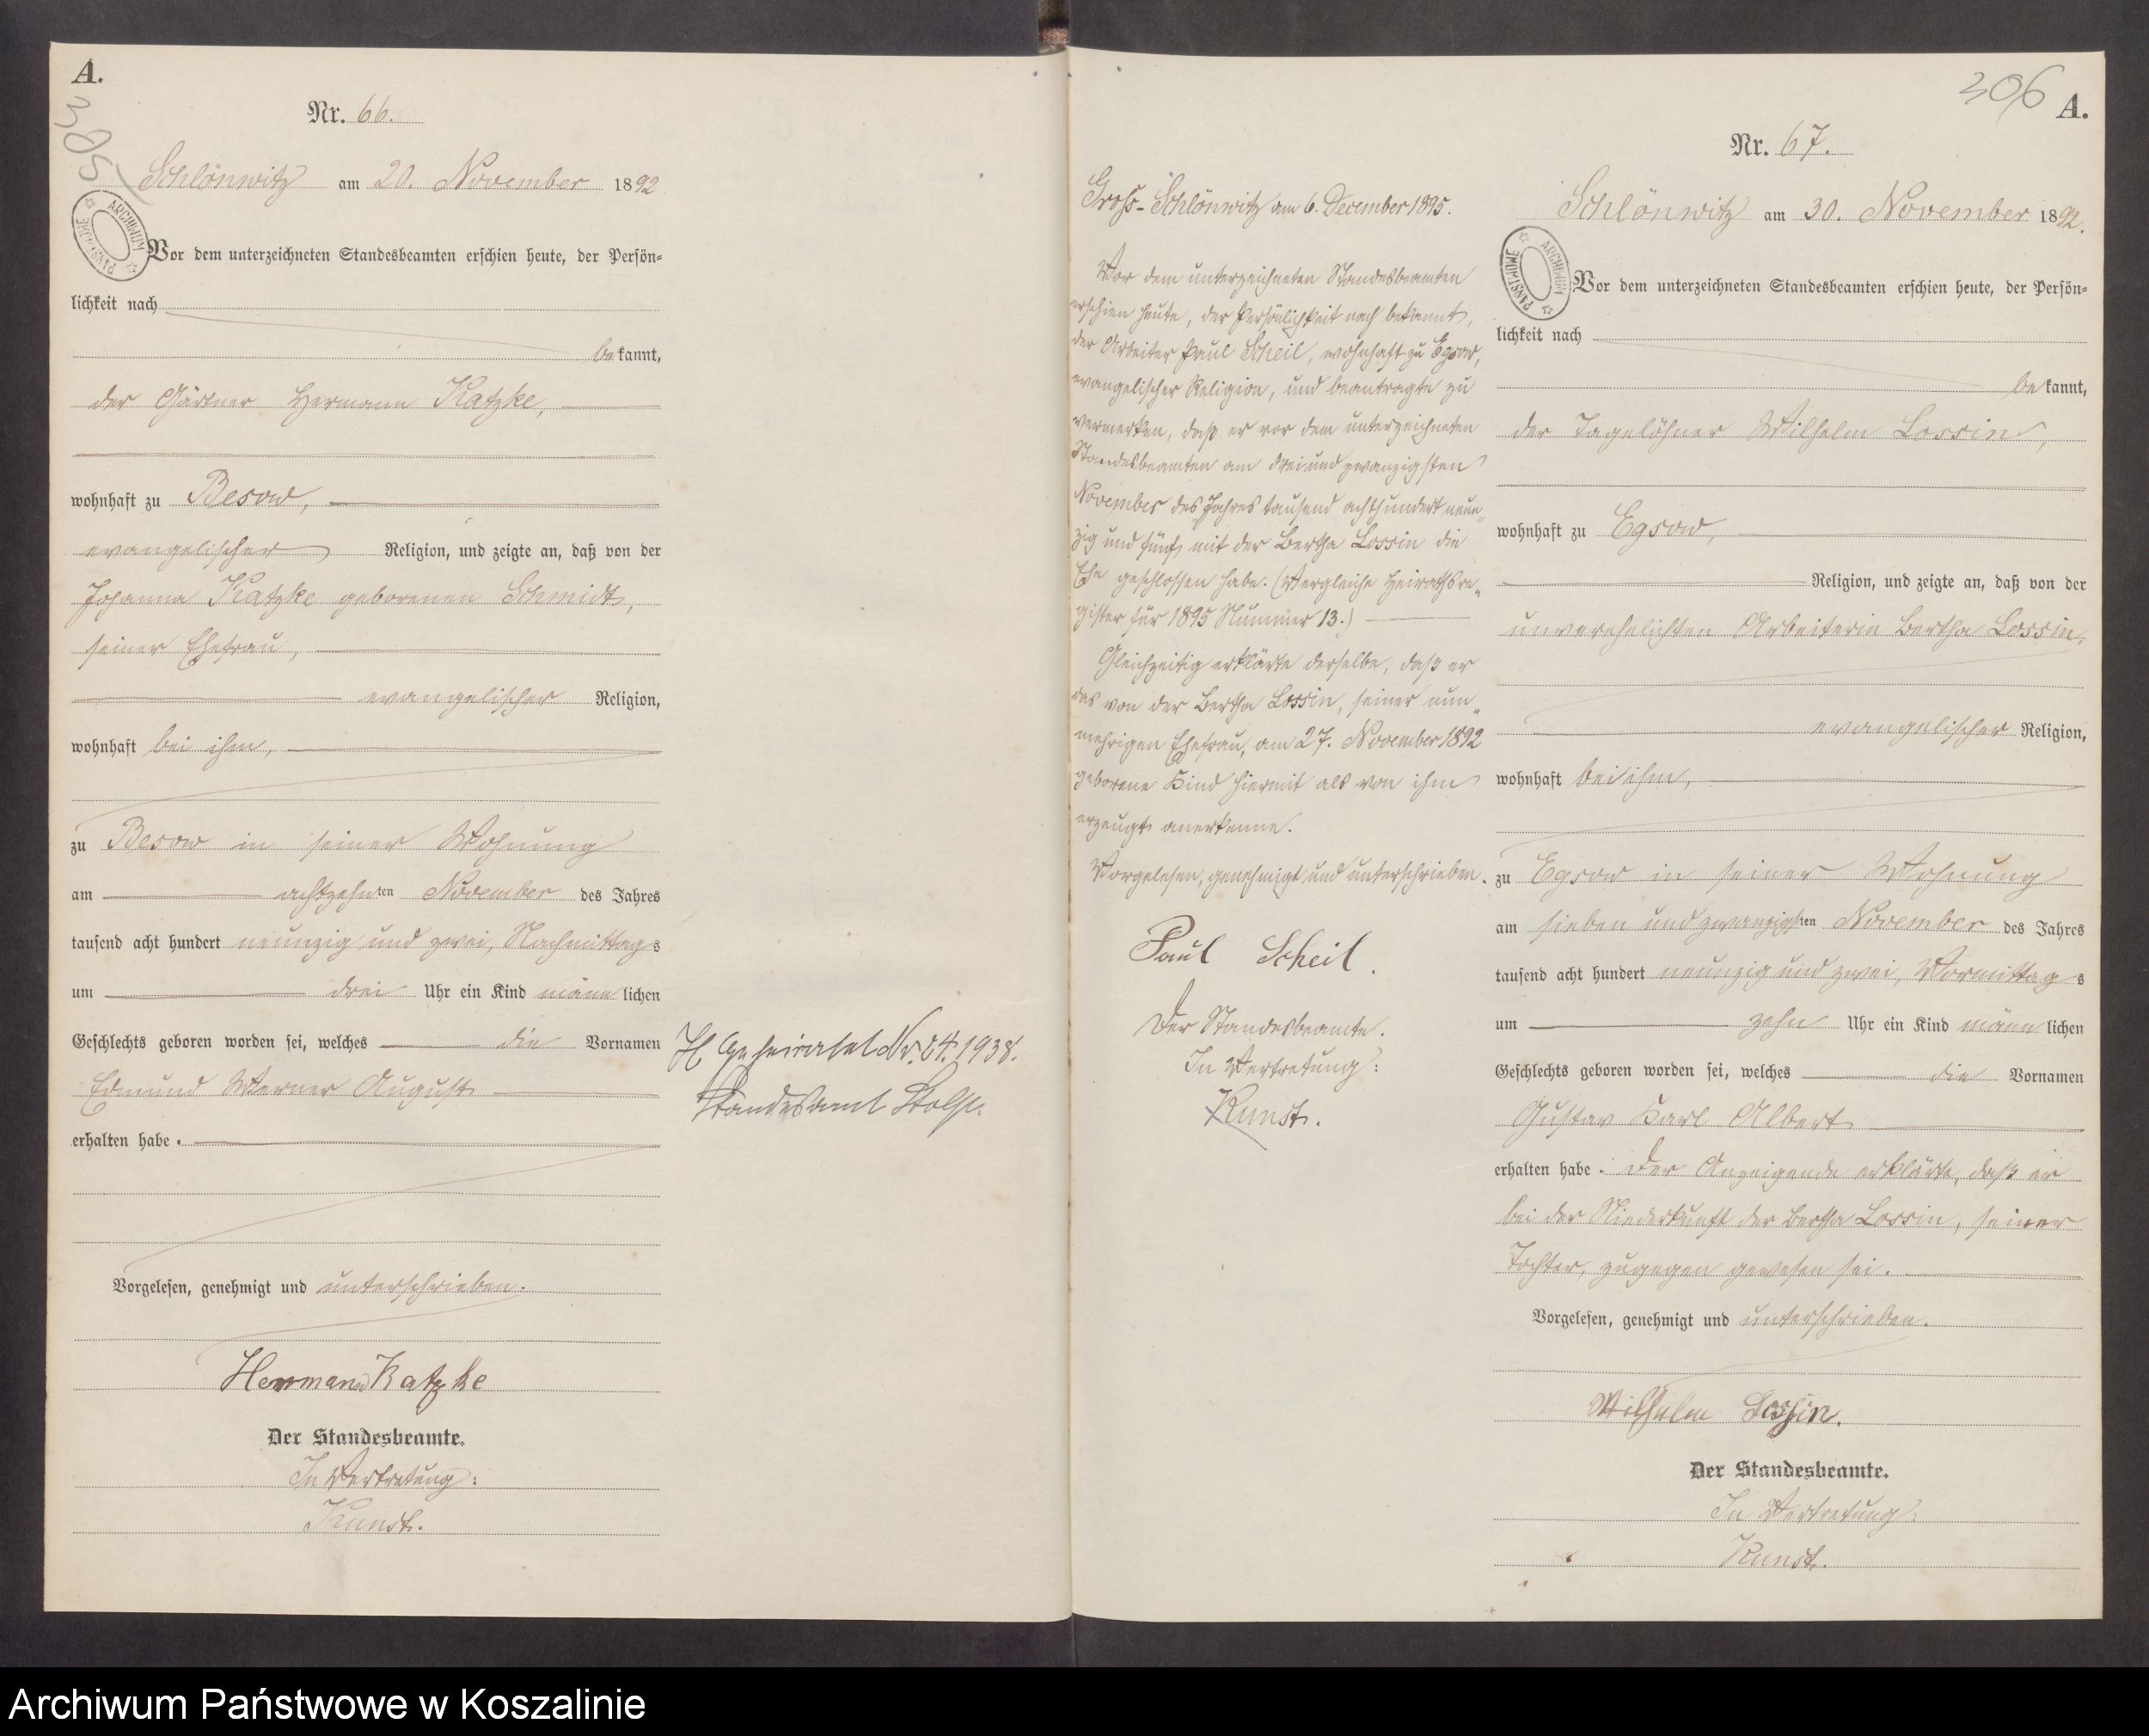 A.
305
Nr. 66.
Schlönwitz am 20. November 1892
ARCHIWUM PAŃSTWOWE
Vor dem unterzeichneten Standesbeamten erschien heute, der Persön=
lichkeit nach
bekannt,
der Gärtner Hermann Katzke,
wohnhaft zu Besow,
evangelischer Religion, und zeigte an, daß von der
Johanna Katzke geborenen Schmidt,
seiner Ehefrau,
evangelischer Religion,
wohnhaft bei ihm,
zu Besow in seiner Wohnung
am achtzehnten November des Jahres
tausend acht hundert neunzig und zwei, Nachmittags
um drei Uhr ein Kind männlichen
Geschlechts geboren worden sei, welches die Vornamen
Edmund Werner August
erhalten habe.
Vorgelesen, genehmigt und unterschrieben.
Hermann Katzke
Der Standesbeamte.
In Vertretung:
Kunst.
Geheiratet Nr. 24. 1938.
Standesamt Stolp.
Groß-Schlönwitz am 6. December 1895.
Vor dem unterzeichneten Standesbeamten
erschien heute, der Persönlichkeit nach bekannt,
der Arbeiter Paul Scheil, wohnhaft zu Egsow,
evangelischer Religion, und beantragte zu
vermerken, daß er vor dem unterzeichneten
Standesbeamten am dreiundzwanzigsten
November des Jahres tausend achthundert neun„
zig und fünf mit der Bertha Lossin die
Ehe geschlossen habe. (Vergleiche Heirathsre„
gister für 1895 Nummer 13.)
Gleichzeitig erklärte derselbe, daß er
das von der Bertha Lossin, seiner nun„
mehrigen Ehefrau, am 27. November 1892
geborene Kind hiermit als von ihm
erzeugt anerkenne.
Vorgelesen, genehmigt und unterschrieben.
Paul Scheil.
Der Standesbeamte.
In Vertretung:
Kunst.
306
A.
Nr. 67.
Schlönwitz am 30. November 1892.
ARCHIWUM PAŃSTWOWE
Vor dem unterzeichneten Standesbeamten erschien heute, der Persön=
lichkeit nach
bekannt,
der Tagelöhner Wilhelm Lossin,
wohnhaft zu Egsow,
Religion, und zeigte an, daß von der
unverehelichten Arbeiterin Bertha Lossin,
evangelischer Religion,
wohnhaft bei ihm,
zu Egsow in seiner Wohnung
am sieben und zwanzigsten November des Jahres
tausend acht hundert neunzig und zwei, Vormittags
um zehn Uhr ein Kind männlichen
Geschlechts geboren worden sei, welches die Vornamen
Gustav Karl Albert
erhalten habe. Der Anzeigende erklärte, daß er
bei der Niederkunft der Bertha Lossin, seiner
Tochter, zugegen gewesen sei.
Vorgelesen, genehmigt und unterschrieben.
Wilhelm Lossin.
Der Standesbeamte.
In Vertretung:
Kunst.
Archiwum Państwowe w Koszalinie